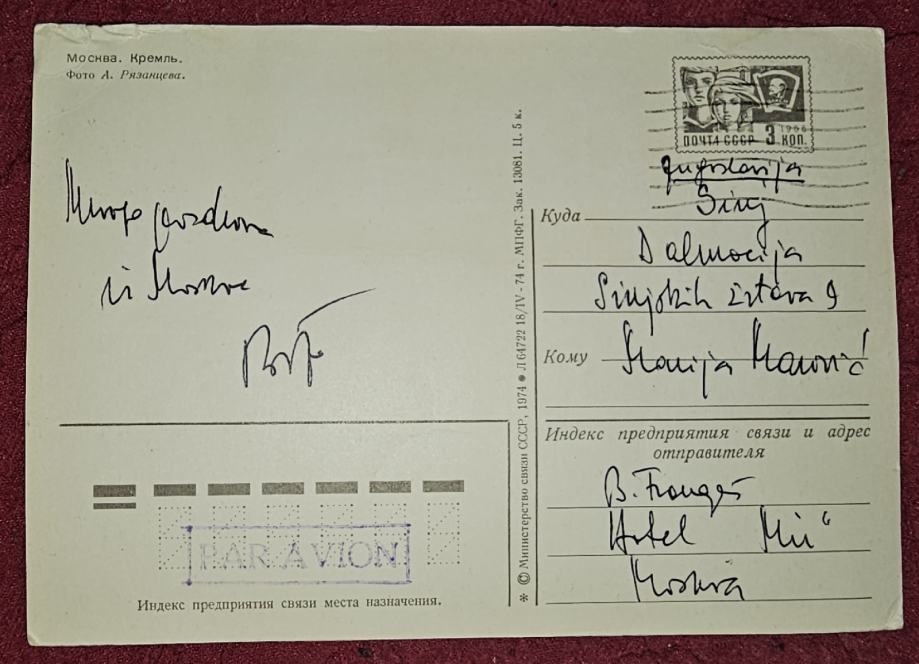 Москва. Кремль.
Фото А. Рязанцева.
Mnogo pozdrava
iz Moskve
* © Министерство связи СССР, 1974 ● Л 64722 18/IV - 74 г. МПФГ. Зак. 13081. Ц. 5 к.
1966
ПОЧТА СССР 3 КОП.
Jugoslavija
Sinj
Куда
Dalmacija
Sinjskih žrtava 9
Кому Marija
Индекс предприятия связи и адрес
отправителя
B. Franges
Hotel Mir"
Moskva
PAR AVION
Индекс предприятия связи места назначения.